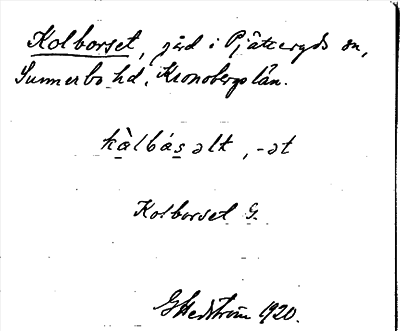 Kolborset, gård i Pjätteryds sn,
Sunnerbo hd, Kronobergs län.
kàlbás əlt, -ət
Kolborset G.
GHedström 1920.